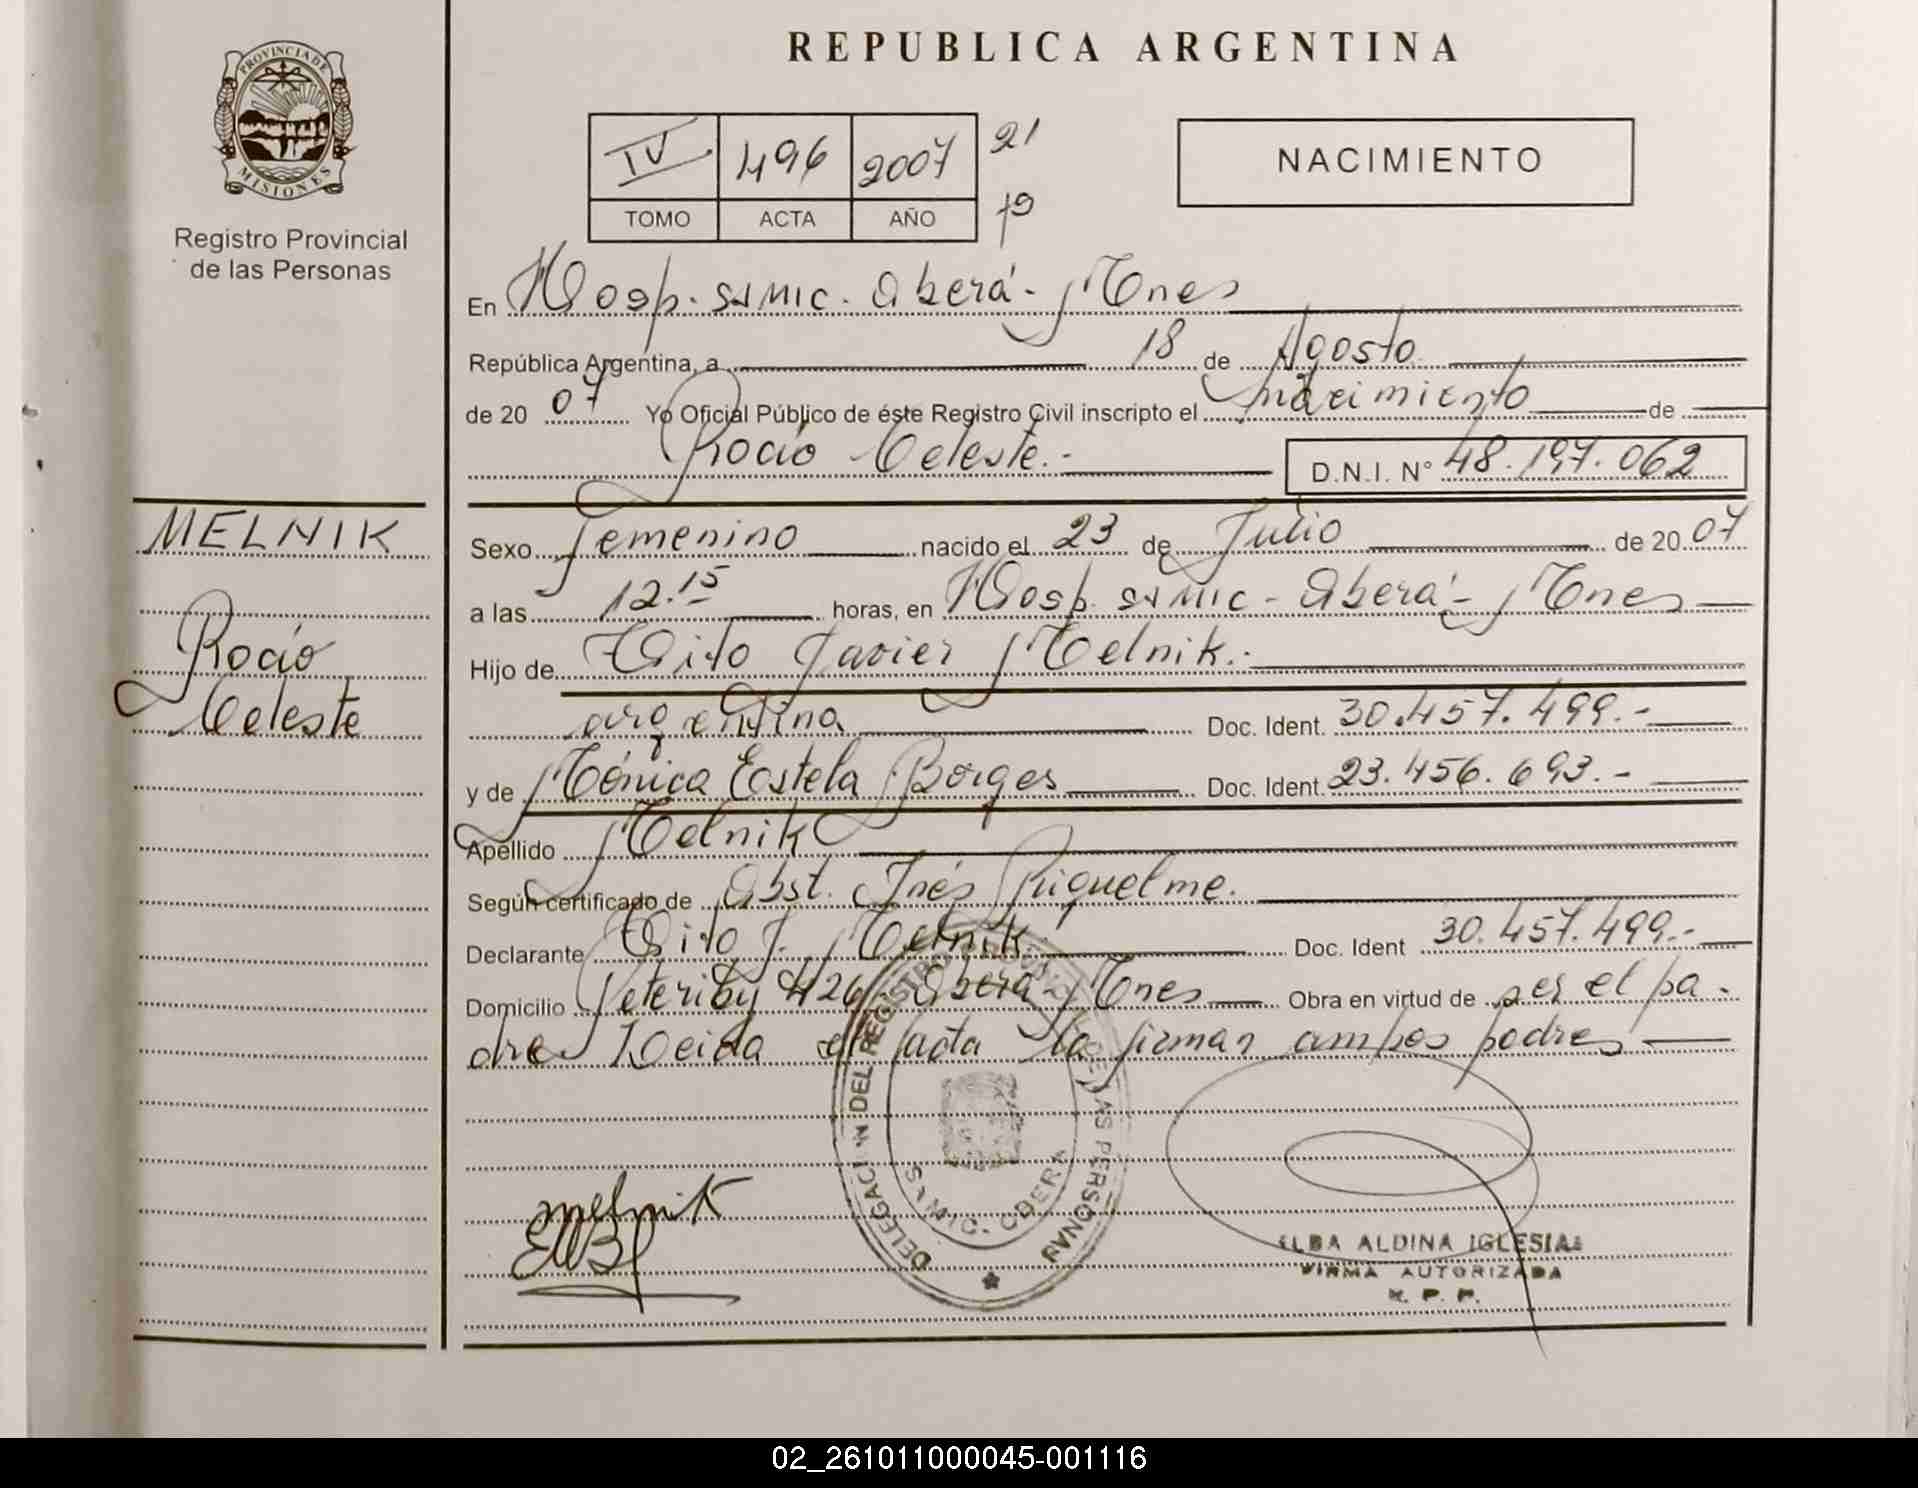 PROVINCIA DE
MISIONES
Registro Provincial
de las Personas
MELNIK
Rocío
Celeste
REPUBLICA ARGENTINA
IV 496 2007 21
TOMO ACTA AÑO 79
NACIMIENTO
En Hosp. SAMIC. Oberá - Mnes
República Argentina, a 18 de Agosto
de 20 07 Yo Oficial Público de éste Registro Civil inscripto el nacimiento de
Rocío Celeste.- D.N.I. N° 48.197.062
Sexo Femenino nacido el 23 de Julio de 20 07
a las 12.15 horas, en Hosp. SAMIC - Oberá - Mnes
Hijo de Javier Melnik.-
argentina Doc. Ident. 30.457.499.-
y de Mónica Estela Borges Doc. Ident. 23.456.693.-
Apellido Melnik
Según certificado de Obst. Inés Riquelme.
Declarante J. Melnik.- Doc. Ident 30.457.499.-
Domicilio 426 - Oberá - Mnes Obra en virtud de ser el pa-
dre Leida el acta la firman ambos padres
melnik
DELEGACION DEL REGISTRO PROVINCIAL DE LAS PERSONAS
SAMIC - OBERA
ELBA ALDINA IGLESIAS
FIRMA AUTORIZADA
R. P. P.
02_261011000045-001116